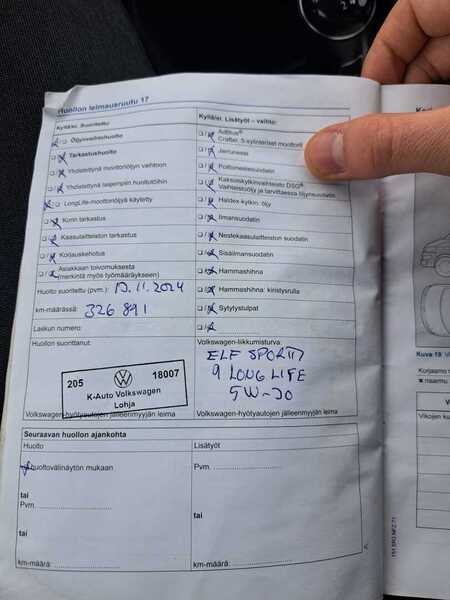 Huollon leimausruutu 17
Kyllä/ei. Suoritettu:
Öljynvaihtohuolto
Tarkastushuolto
Yhdistettynä moottoriöljyn vaihtoon
Yhdistettynä laajempiin huoltotöihin
LongLife-moottoriöljyä käytetty
Korin tarkastus
Kaasulaitteiston tarkastus
Korjauskehotus
Asiakkaan toivomuksesta
(merkintä myös työmääräykseen)
Huolto suoritettu (pvm.): 13.11.2024
km-määrässä: 326 891
Laskun numero:
Huollon suorittanut:
205 18007
K-Auto Volkswagen
Lohja
Volkswagen-hyötyautojen jälleenmyyjän leima
Kyllä/ei. Lisätyöt – vaihto:
AdBlue®
Crafter, 5-sylinteriset moottorit
Jarruneste
Polttoainesuodatin
Kaksoiskytkinvaihteisto DSG®
Vaihteistoöljy ja tarvittaessa öljynsuodatin
Haldex-kytkin: öljy
Ilmansuodatin
Nestekaasulaitteiston suodatin
Sisäilmansuodatin
Hammashihna
Hammashihna: kiristysrulla
Sytytystulpat
Volkswagen-liikkumisturva:
ELF SPORTI
9 LONG LIFE
5W-30
Volkswagen-hyötyautojen jälleenmyyjän leima
Seuraavan huollon ajankohta
Huolto
Huoltovälinäytön mukaan
tai
Pvm.
tai
km-määrä:
Lisätyöt
Pvm.
tai
km-määrä:
Kuva 19
Korjaamo